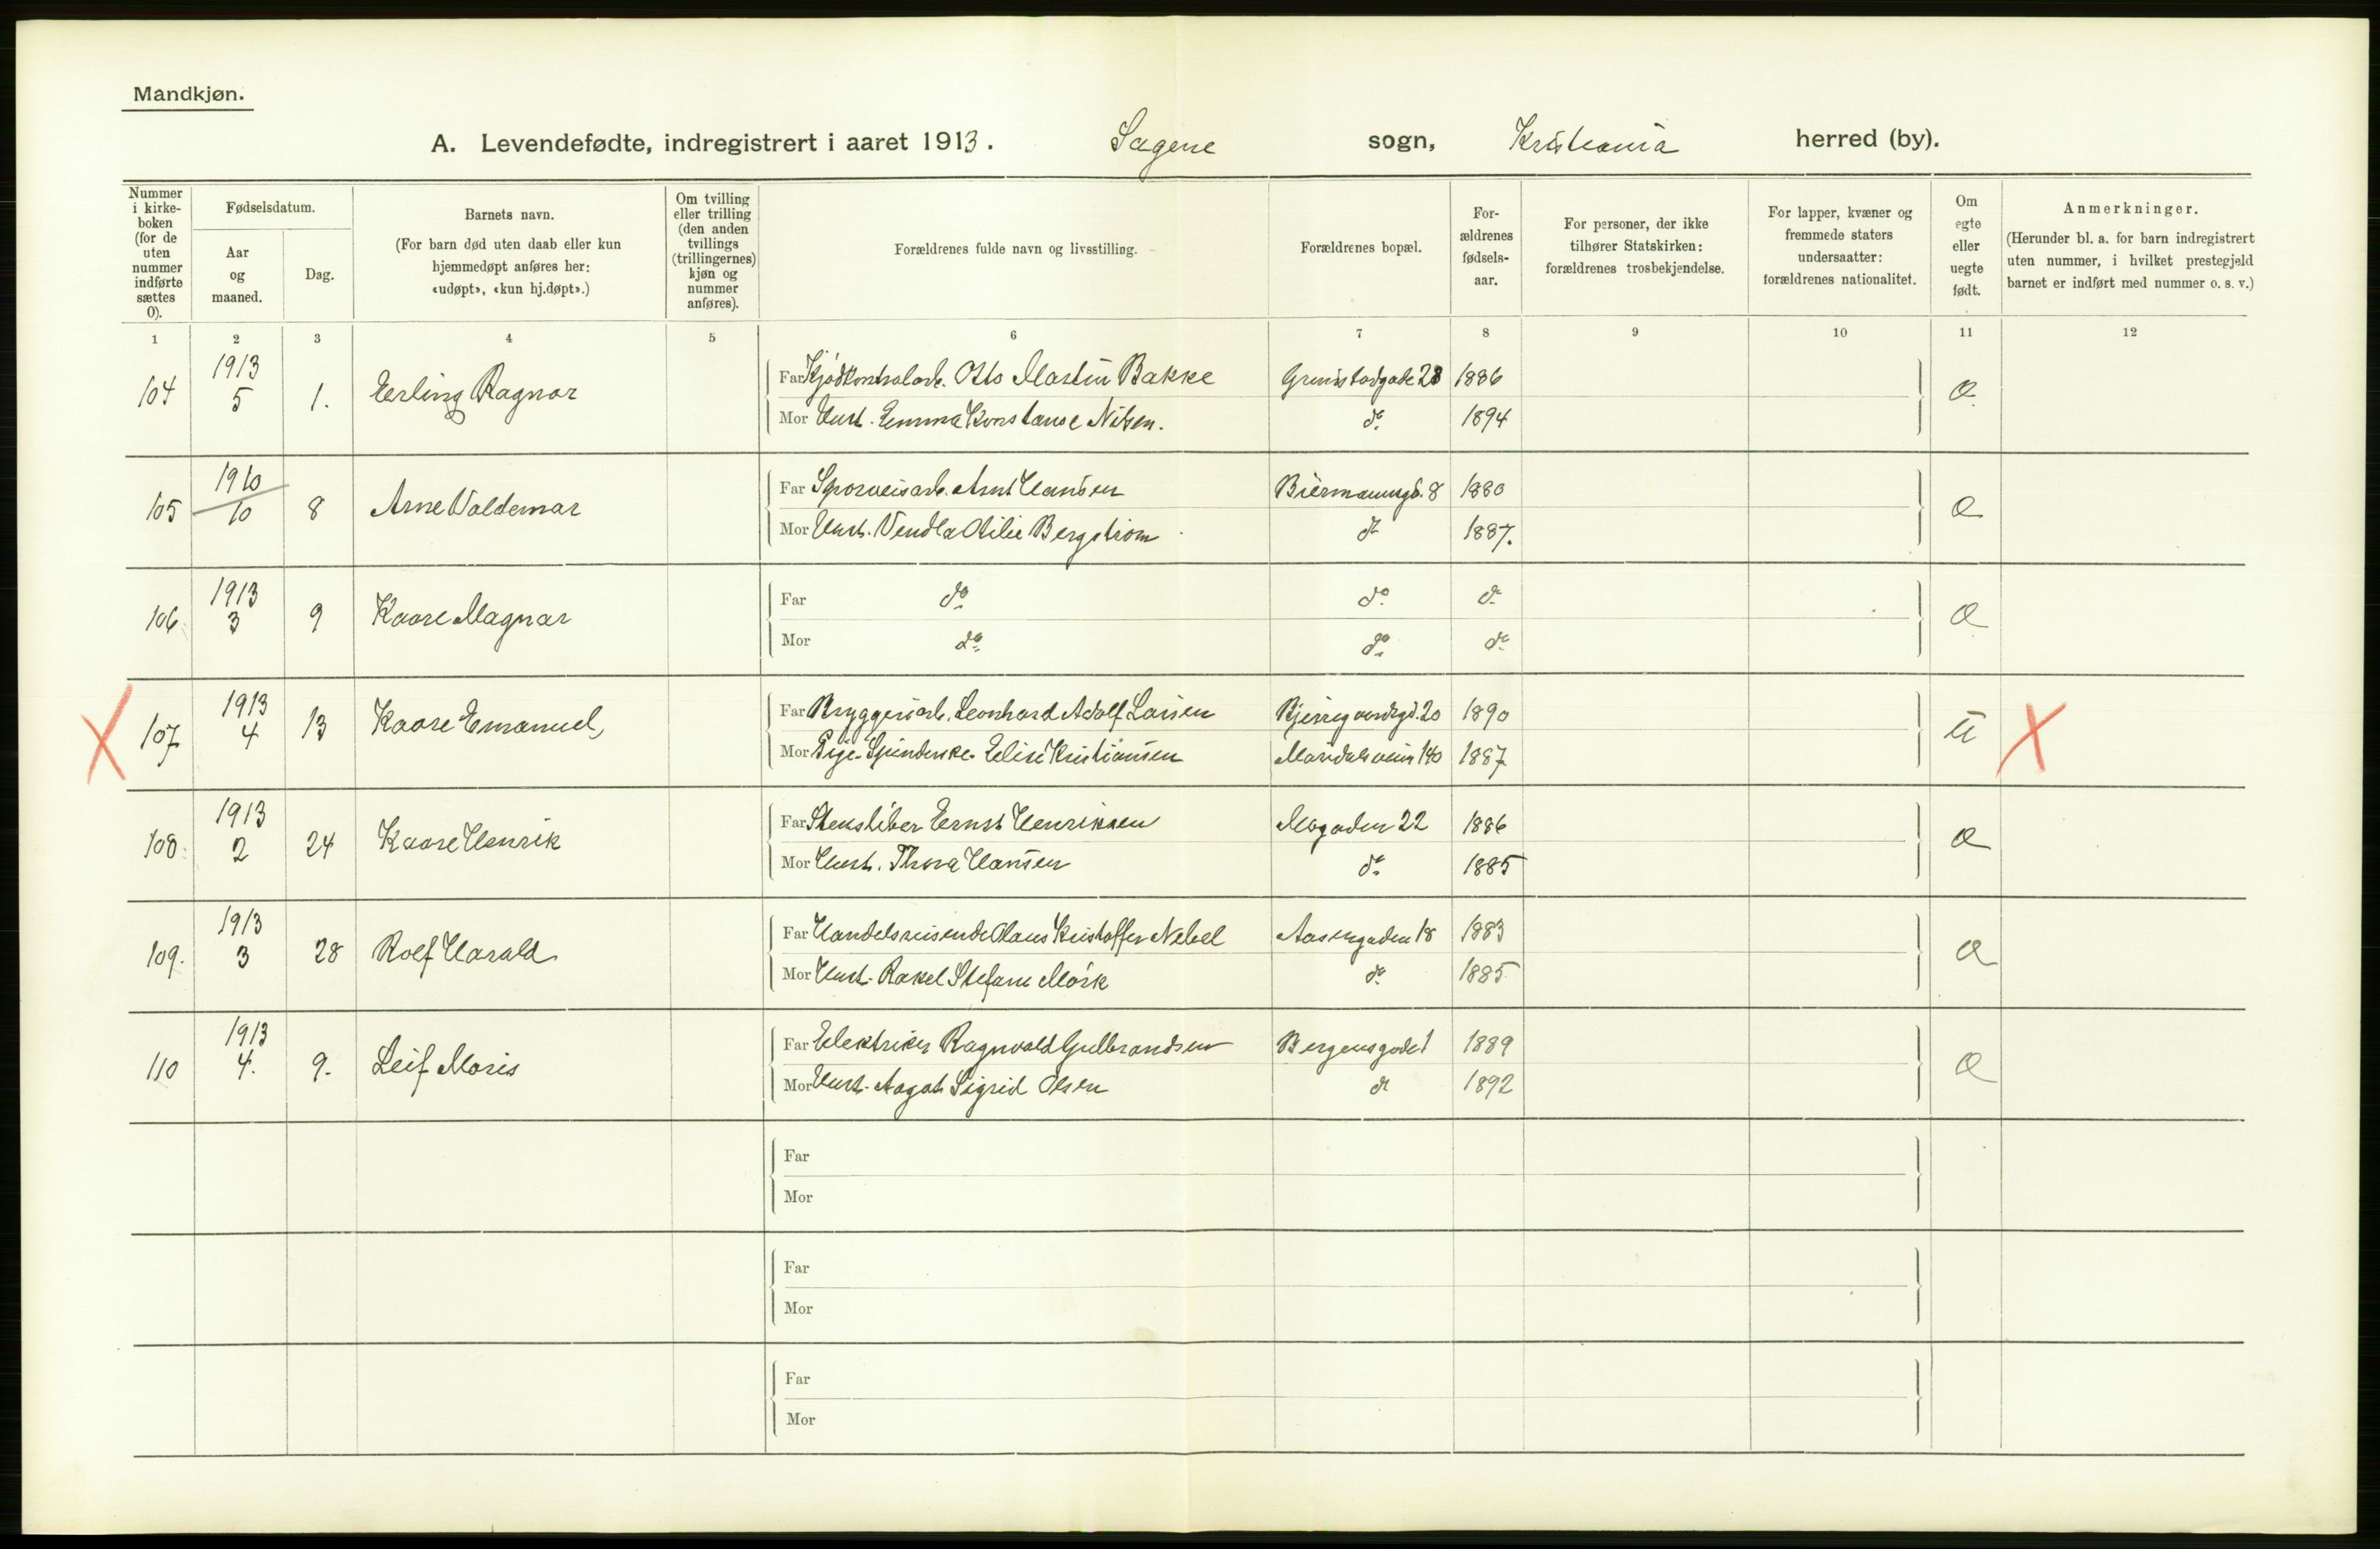 Mandkjøn.
A. Levendefødte, indregistrert i aaret 1913. Sagene sogn, Kristiania herred (by).
Nummer i kirke-boken (for de uten nummer indførte sættes 0).
Fødselsdatum.
Aar og maaned.
Dag.
Barnets navn.
(For barn død uten daab eller kun hjemmedøpt anføres her: «udøpt», «kun hj.døpt».)
Om tvilling eller trilling (den anden tvillings (trillingernes) kjøn og nummer anføres).
Forældrenes fulde navn og livsstilling.
Forældrenes bopæl.
For-ældrenes fødsels-aar.
For personer, der ikke tilhører Statskirken: forældrenes trosbekjendelse.
For lapper, kvæner og fremmede staters undersaatter: forældrenes nationalitet.
Om egte eller uegte født.
Anmerkninger.
(Herunder bl. a. for barn indregistrert uten nummer, i hvilket prestegjeld barnet er indført med nummer o. s. v.)
1 2 3 4 5 6 7 8 9 10 11 12
104 1913 5 1. Erling Ragnar
Far Kjødkontrolarb. Otto Martin Bakke Grimstadgade 28 1886
Mor Hust. Emma Konstanse Nilsen. do 1894
105 1910 10 8 Arne Valdemar
Far Sporveisarb. Arnt Hansen Biermannsgd. 8 1880
Mor Hust. Vendla Otilie Bergstrøm do 1887.
106 1913 3 9 Kaare Magnar
Far do do do
Mor do do do
X 107 1913 4 13 Kaare Emanuel
Far Bryggeriarb. Leonhard Adolf Larsen Bjerregaardsgd. 20 1890 u X
Mor Pige Elise Kristiansen Maridalsveien 140 1887
108 1913 2 24 Kaare Henrik
Far Stensliber Ernst Henriksen Mogaden 22 1886
Mor Hust. Thora Hansen do 1885
109. 1913 3 28 Rolf Harald
Far Handelsreisende Olaus Kristoffer Nebel Aasengaden 18 1883
Mor Hust. Rakel Stefanie Mörk do 1885
110 1913 4. 9. Leif Moris
Far Elektriker Ragnvald Gulbrandsen Bergensgade 1 1889
Mor Hust. Aagot Sigrid Olsen do 1892
Far
Mor
Far
Mor
Far
Mor